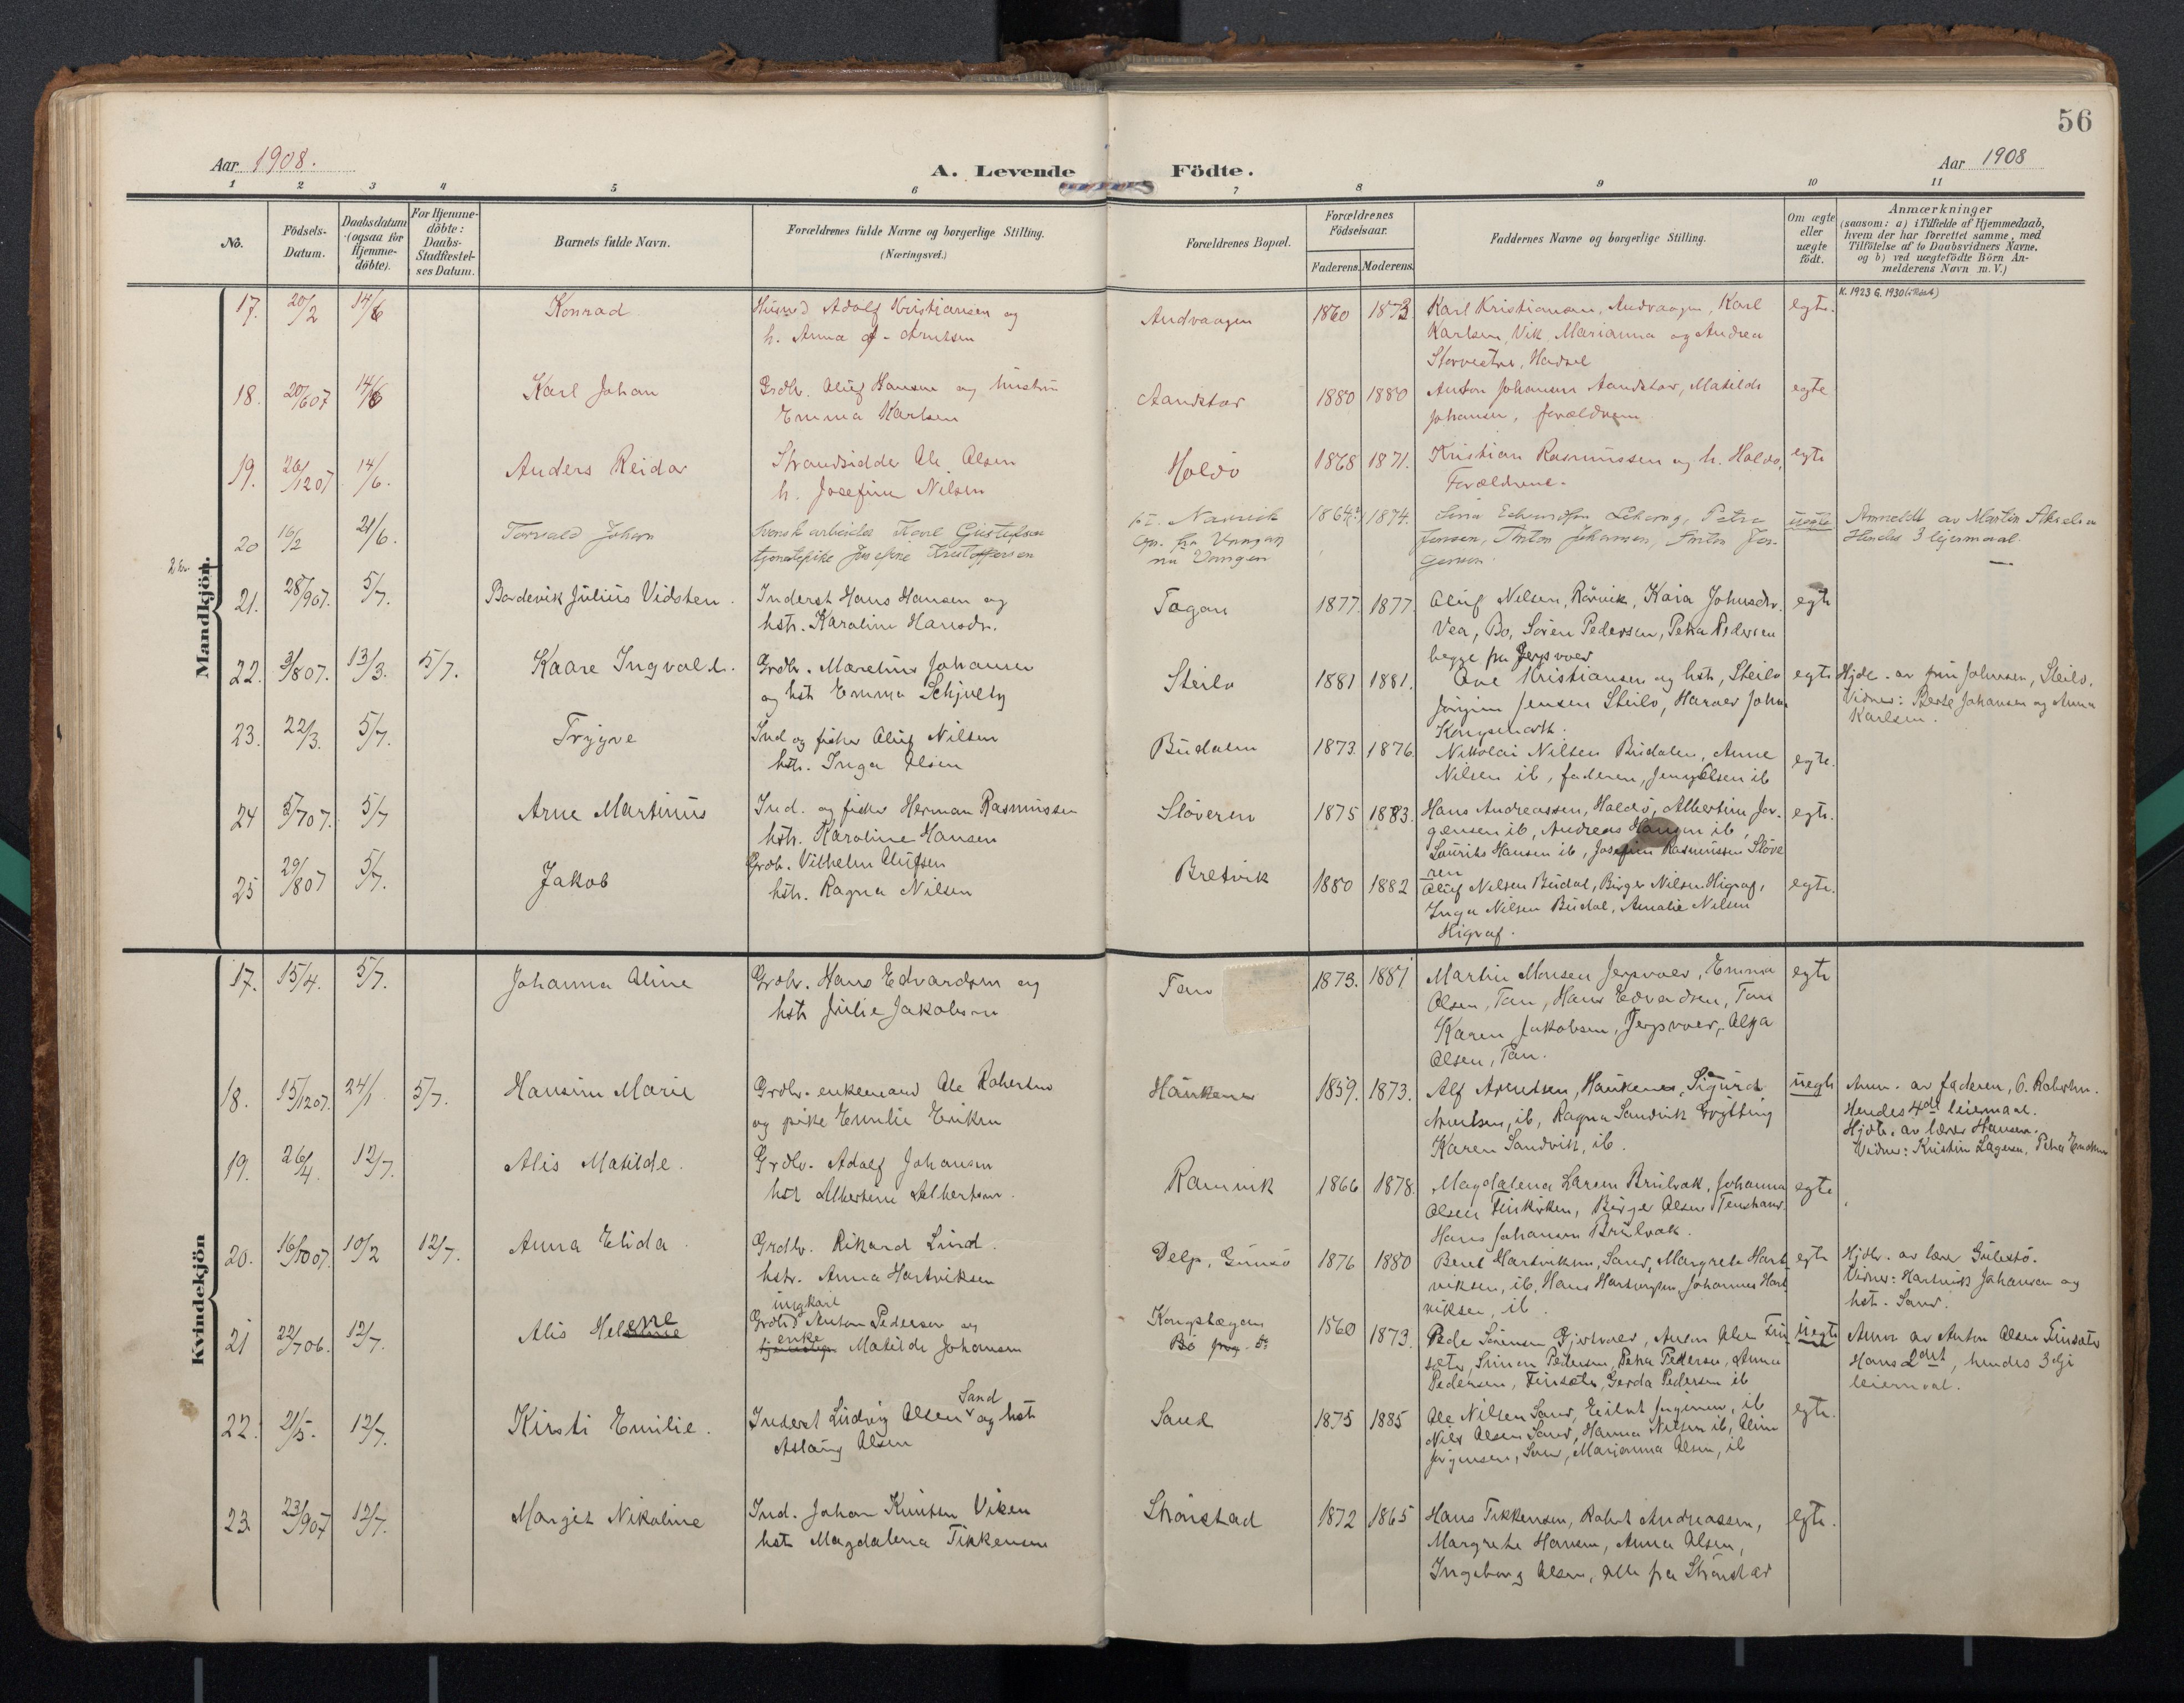 56
Aar 1908.
A. Levende Födte.
Aar 1908
1 2 3 4 5 6 7 8 9 10 11
No.
Födsels-
Datum.
Daabsdatum
(ogsaa for
Hjemme-
döbte).
For Hjemme-
döbte:
Daabs-
Stadfæstel-
ses Datum.
Barnets fulde Navn.
Forældrenes fulde Navne og borgerlige Stilling.
(Næringsvei.)
Forældrenes Bopæl.
Forældrenes
Födselsaar.
Faderens. Moderens.
Faddernes Navne og borgerlige Stilling.
Om ægte
eller
uægte
födt.
Anmærkninger
(saasom: a) i Tilfælde af Hjemmedaab,
hvem der har forrettet samme, med
Tilföielse af to Daabsvidners Navne.
og b) ved uægtefödte Börn An-
melderens Navn m. V.)
Mandkjön.
17. 20/2 14/6 Konrad
Adolf Kristiansen og
h. Anna Arntsen
Andvaagen 1860 1873
Karl Kristiansen, Andvaagen, Karl
Karlsen, Vik, Marianna og Andrea
Storvestre, Hadsel
egte.
K. 1923 G. 1930
18. 20/607 14/6 Karl Johan
Grdbr. Oluf Hansen og hustru
Emma Karlsen
Aandstad 1880 1880
Anton Johansen Aandstad, Matilde
Johansen, forældrene
egte
19. 26/1207 14/6. Anders Reidar
Strandsidder Ole Olsen
h. Josefine Nilsen
Holdö 1868 1871.
Kristian Rasmussen og h. Holdö,
Forældrene.
egte
20 16/2 21/6. Torvald Johan
Svensk arbeider Karl Gustafsen
tjenestepike Josefine Kristoffersen
pt. Narvik
nu Unngen
1864 1874.
Jensen, Anton Johansen, Anton Jör-
gensen
uegte
Anmeldt av Martin Akselsen
Hendes 3 lejermaal.
21. 28/907. 5/7. Bardevik Julius Vidsten.
Inderst Hans Hansen og
hstr. Karoline Hansdr.
Tagan 1877. 1877.
Oluf Nilsen, Rörvik, Kaia Johnsdr.
Vea, Bo, Sören Pedersen, Petra Pedersen
begge fra Jerpvoer
egte
22. 3/807. 13/3. 5/7. Kaare Ingvald.
Grdbr. Marelius Johansen
og hst Emma Schjelly
Steilo 1881 1881.
Ove Kristiansen og hst, Steilo
Jörgine Jensen Steilo, Harald Johan
Kongsmark.
egte
Hjdb. av frue Johnsen, Steilo.
Vidner: Berte Johansen og Anna
Karlsen.
23. 22/3. 5/7. Trygve
Ind og fisker Oluf Nilsen
hstr. Inga Olsen
Budalen 1873. 1876
Nikolai Nilsen Budalen, Anne
Nilsen ib, faderen, Jenny Olsen ib
egte.
24 5/707. 5/7 Arne Martinus
Ind. og fisker Herman Rasmussen
hstr. Karoline Hansen
Slöveren 1875 1883.
Hans Andreassen, Holdö, Albertine Jör-
gensen ib, Andreas Hansen ib,
Laurits Hansen ib, Josefine Rasmussen Slöve
ren
egte.
25 29/807 5/7. Jakob
Grdb. Vilhelm Olufsen
hstr. Ragna Nilsen
Bretvik 1880 1882
Oluf Nilsen Budal, Birger Nilsen Higraf,
Inga Nilsen Budal, Amalie Nilsen
Higraf.
egte.
Kvindekjön
17. 15/4. 5/7. Johanna Oline
Grdbr. Hans Edvardsen og
hstr Julie Jakobsen
Tan 1873. 1881
Martin Monsen Jerpvoer, Emma
Olsen, Tan, Hans Edvardsen, Tan
Karen Jakobsen, Jerpvoer, Olga
Olsen, Tan.
egte
18. 15/1207. 24/1 5/7. Hansine Marie
Grdbr. enkemand Ole Robertsen
og pike Emilie Eriksen
Haukenes 1859. 1873.
Alf Arentsen, Haukenes, Sigurd
Arentsen, ib, Ragna Sandvik Grytting
Karen Sandvik, ib.
uegte
Anm. av faderen, O. Robertsen.
Hendes 4de leiermaal.
Hjdb. av lærer Hansen.
Vidner: Kristine Lagesen, Petra
19. 26/4. 12/7. Alis Matilde.
Grdbr. Adolf Johansen
hst Albertine Albertsen.
Ramvik 1866 1878.
Magdalena Larsen Brulvak, Johanna
Olsen Finkirken, Birger Olsen
Hans Johansen Brulvak.
egte
20. 16/1007. 10/2 12/7. Anna Elida
Grdbr. Rikard Lind.
hstr. Anna Hartviksen
Delp, Gimsö 1876 1880
Beret Hartviksen, Sand, Margrete Hart
viksen, ib, Hans Johannes Hart
viksen, ib.
egte
Hjdb. av lærer Gulestö.
Vidner: Hartvik Johansen og
hst. Sand.
21 22/706. 12/7. Alis Helene
ungkarl
Anton Pedersen og
enke Matilde Johansen
Kongshagen
Bö
1860 1873.
Peder Sörensen
Simon Pedersen, Petra Pedersen, Anna
Pedersen, Finsæter, Gerda Pedersen ib
uegte
Anm av Anton Olsen Finsæter
Hans 2det, hendes 3dje
leiermaal.
22. 21/5. 12/7. Kirsti Emilie.
Sand
Inderst Ludvig Olsen og hst
Aslaug Olsen
Sand 1875 1885
Ole Nilsen Sand, ib
Nils Olsen Sand, Hanna Nilsen ib, Oline
Jörgensen, Sand, Marianna Olsen, ib
egte.
23. 23/907 12/7. Margit Nikoline
Ind. Johan Knutsen Viken
hst Magdalena Tikkensen
Strönstad 1872 1865
Hans Tikkensen, Robert Andreassen,
Margrete Hansen, Anna Olsen,
Ingeborg Olsen, alle fra Strönstad
egte.